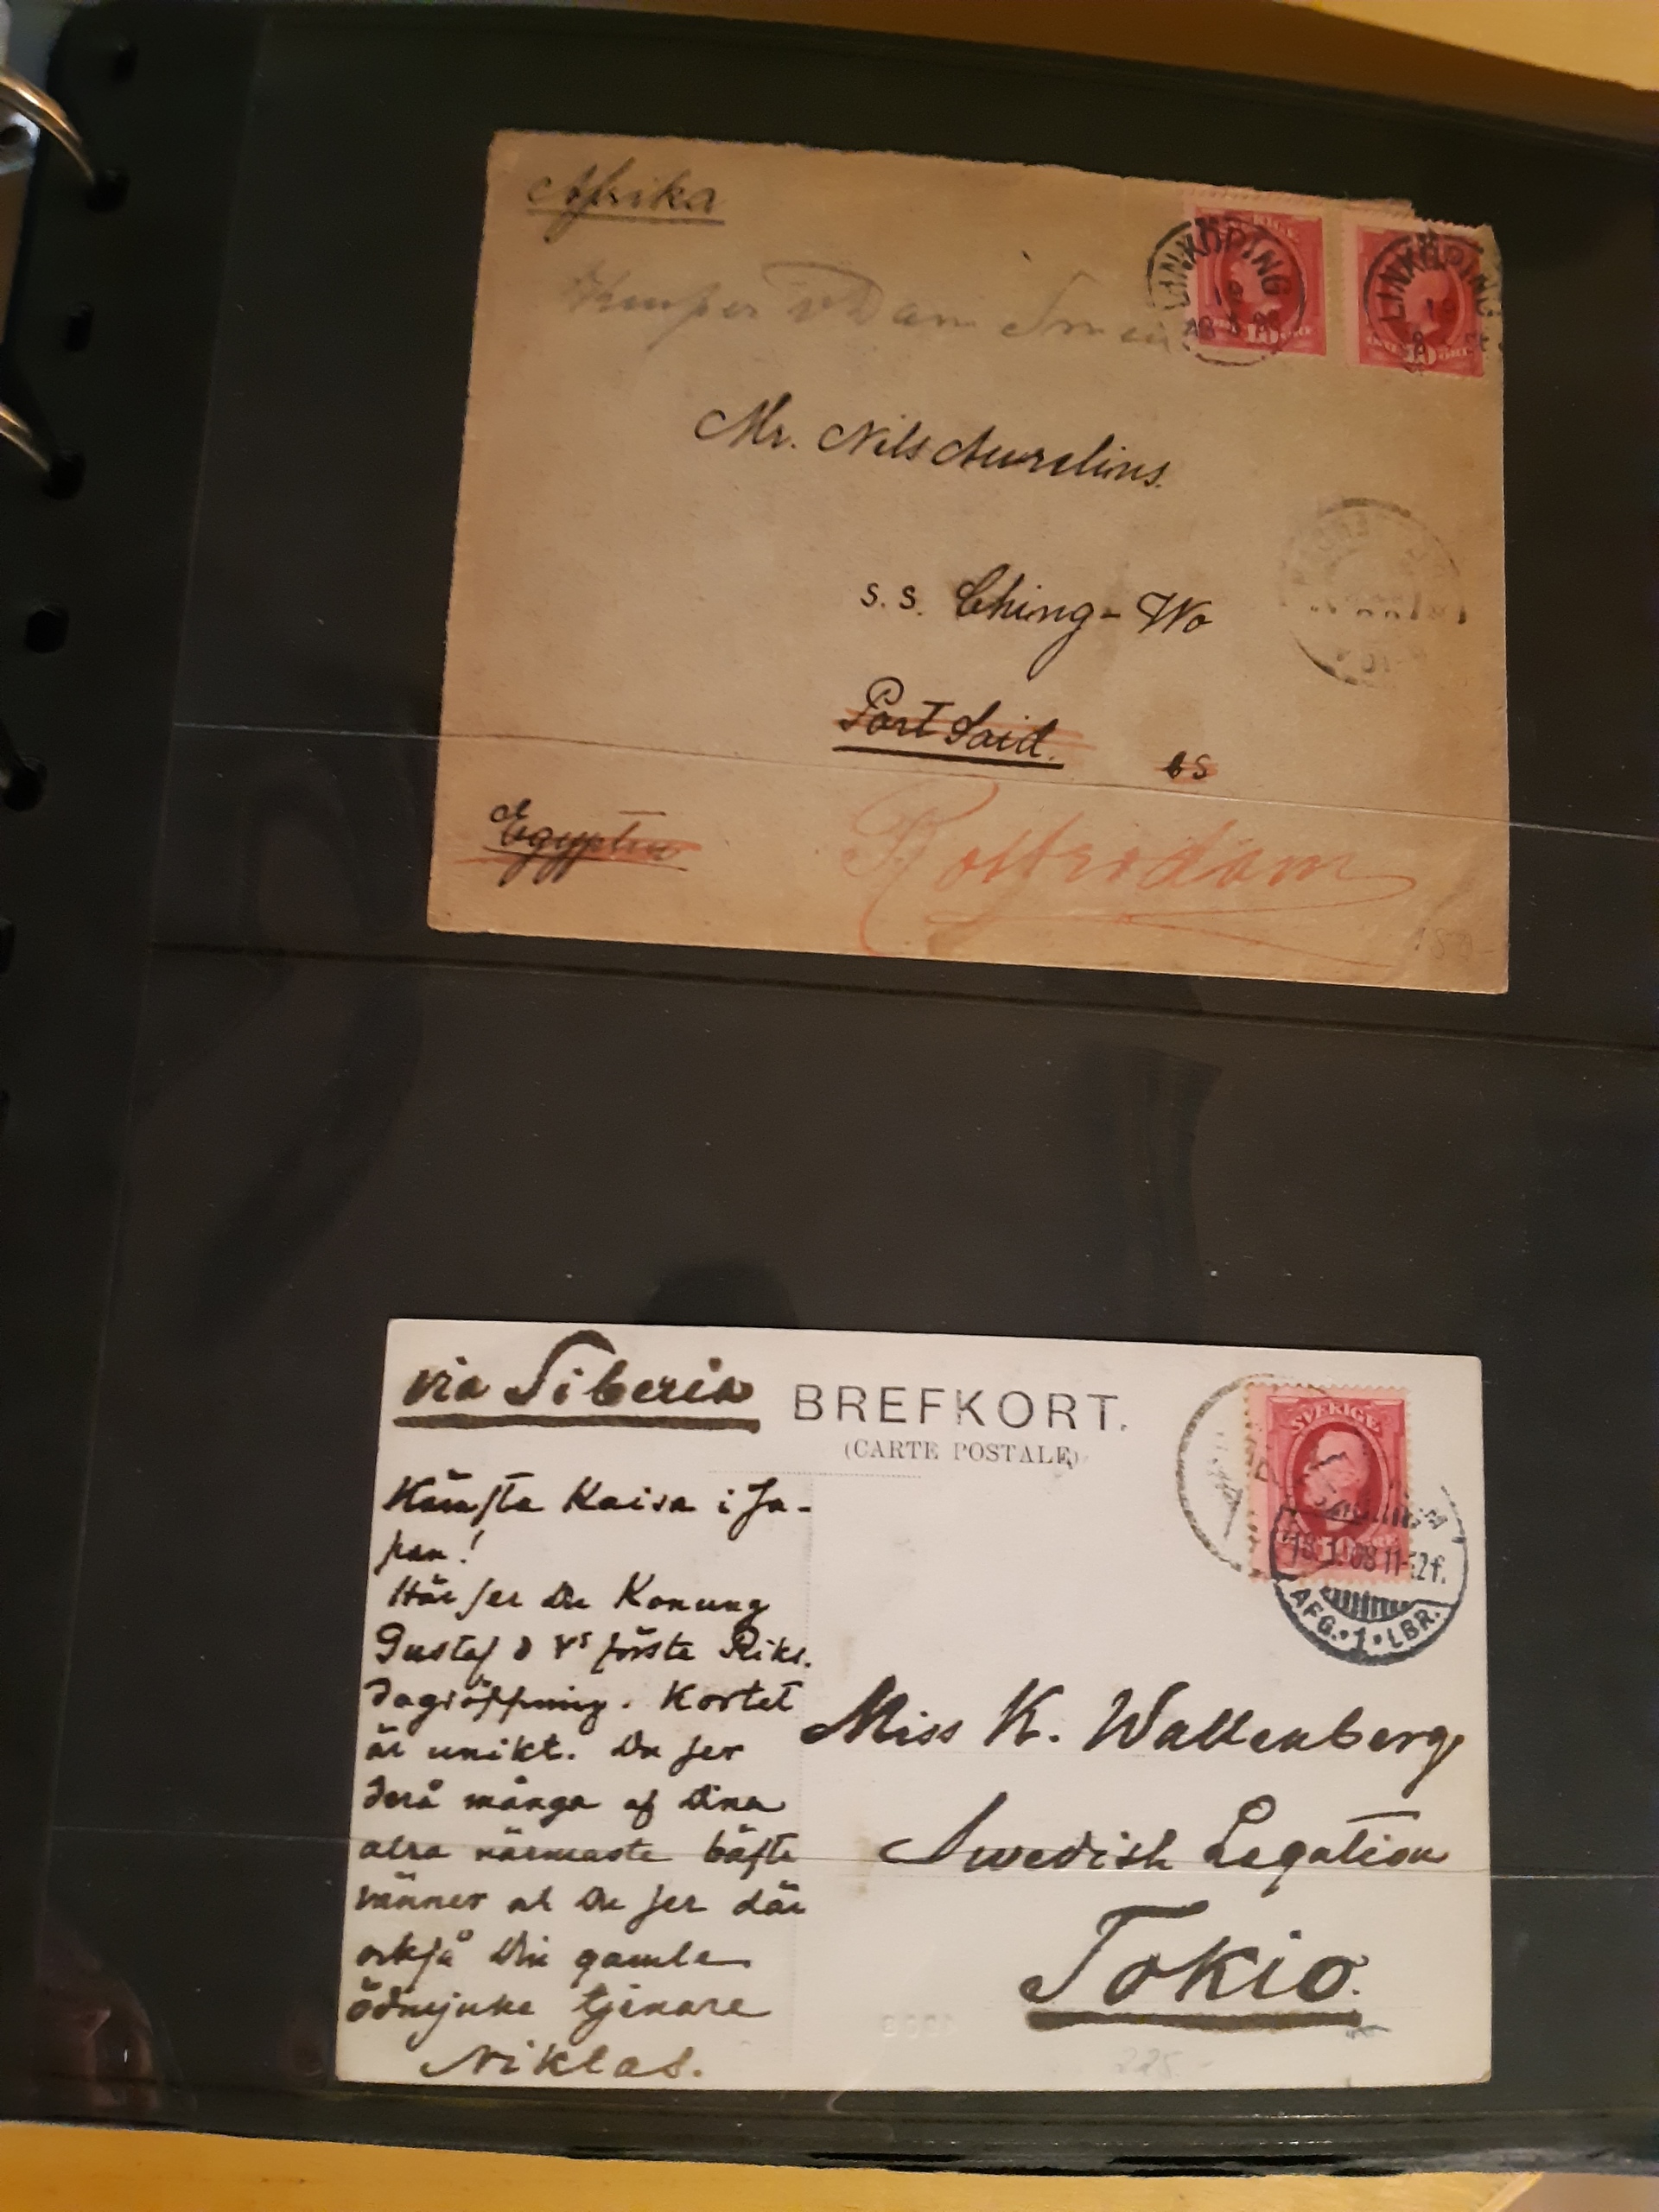 Afrika
LINKÖPING
LINKÖPING
10
Mr. Nils Aurelius.
S.S. Ching-Wo
Port Said.
Egypten
Rotterdam
via Siberia
BREFKORT.
(CARTE POSTALE)
SVERIGE
11-12 f.
AFG. 1 LBR.
Kära Kaisa i Ja-
pan!
Här ser Du Konung
Gustaf d Vs första Riks.
dagsöppning. Kortet
är unikt. Du ser
derå många af Dina
alra närmaste bästa
vänner
Du ser där
också Din gamle
ödmjuke tjenare
Niklas.
Miss K. Wallenberg
Swedish Legation
Tokio.
225.-